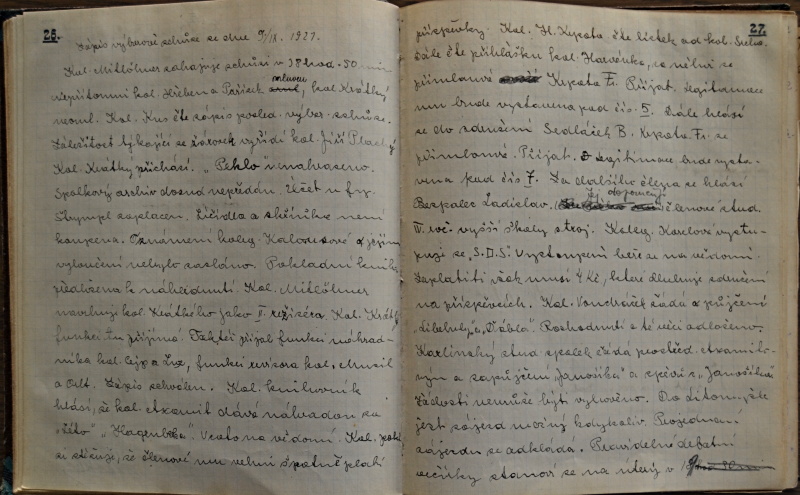 26.
Zápis výborové schůze ze dne 9/IX. 1927.
Kol. Mitlöhner zahajuje schůzi v 18 hod. 50 min
Nepřítomni kol. Hüben a Pařízek omluveni, kol. Krátký
neoml. Kol. Kus čte zápis posled. výbor. schůze.
Záležitost týkající se žárovek vyřídí kol. Jiří
Kol. Krátký přichází. „Peklo" nenahrazeno.
Spolkový archiv dosud nepředán. Účet u fy.
zaplacen. Líčidla a skříňka není
koupena. Oznámení koleg. Kalousové o jejím
vyloučení nebylo zasláno. Pokladní kniha
předložena k nahlédnutí. Kol. Mitlöhner
navrhuje kol. Krátkého jako II. režiséra. Kol. Krátký
funkci tu přijímá. Taktéž přijal funkci náhrad-
níka kol. a Lux, funkci revisora kol. Musil
a Zápis schválen. Kol. knihovník
hlásí, že kol. dává náhradou za
„Léto" „Vzato na vědomí. Kol.
si stěžuje, že členové mu velmi špatně platí
27.
příspěvky. Kol. H. Kypata čte lístek od kol.
Dále čte přihlášku kol. Havránka, za něhž se
přimlouvá Kypata Fr. Přijat. Legitimace
mu bude vystavena pod čís. 5. Dále hlásí
se do sdružení Sedláček B. Kypata Fr. se
přimlouvá. Přijat. Legitimace bude vysta-
vena pod čís 7. Za dalšího člena se hlásí
Bezpalec Ladislav. Jej doporučují členové stud.
IV. roč. vyšší školy stroj. Koleg. Karlové vystu-
puje ze „S.D.S." Vystoupení bere se na vědomí.
Zaplatiti však musí 4 Kč, které dluhuje sdružení
na příspěvcích. Kol. Vondráček žádá o půjčení
„Libebuty" a „Ďábla". Rozhodnutí o té věci odloženo.
Karlínský stud. spolek žádá prostřed.
ným o zapůjčení „Janošíka" a zpěvů z „Janošíka"
Žádosti nemůže býti vyhověno. Do
jest zájezd možný kdykoliv. Projednání
zájezdu se odkládá. Pravidelné debatní
večírky stanoví se na úterý v 19